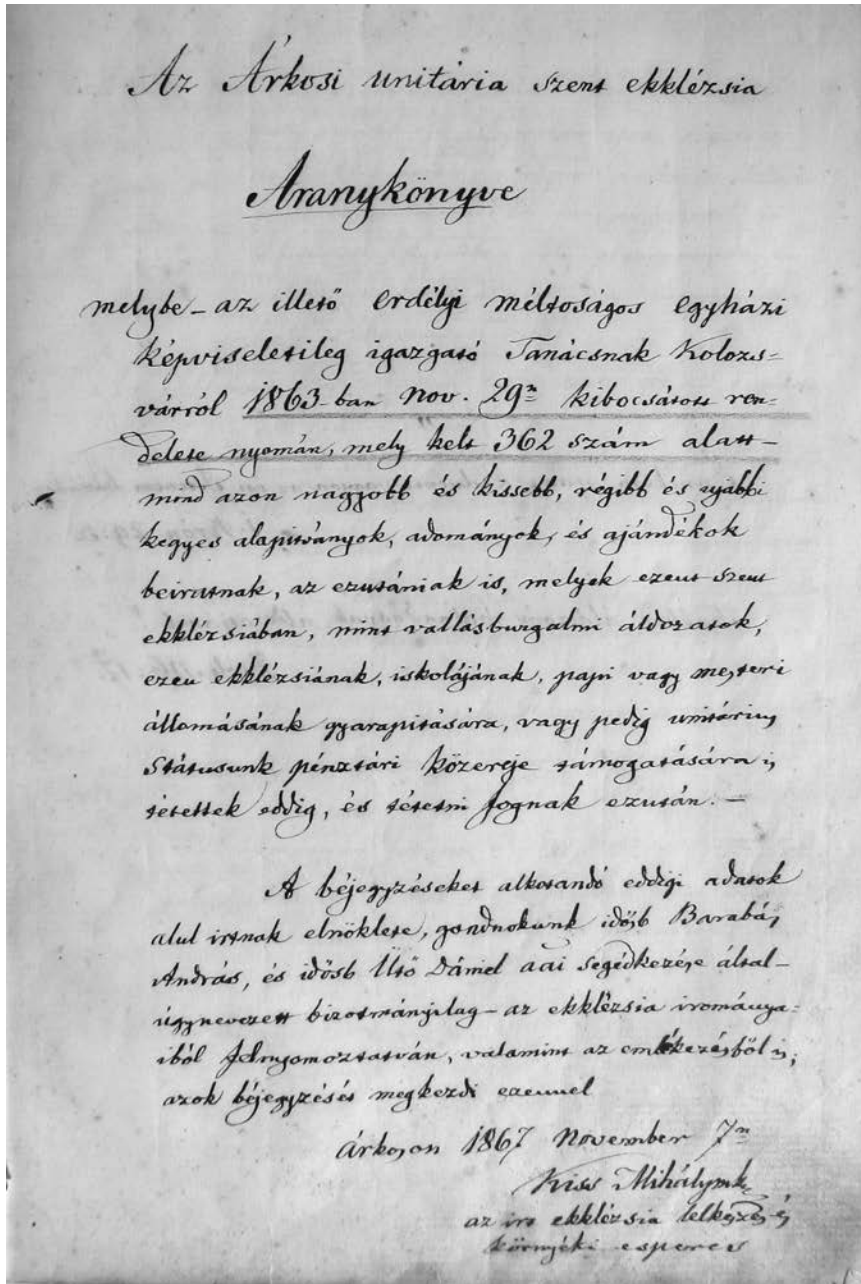 Az Árkosi unitária szent ekklézsia
Aranykönyve
melybe – az illető erdélyi méltoságos egyházi
képviseletileg igazgató Tanácsnak Kolozs=
várról 1863-ban Nov. 29n kibocsátott ren=
delete nyomán, mely kelt 362 szám alatt –
mind azon nagyobb és kissebb, régibb és ujabbi
kegyes alapitványok, adományok, és ajándékok
beiratnak, az ezutániak is, melyek ezent szent
ekklézsiában, mint vallásburgalmi áldozatok,
ezen ekklézsiának, iskolájának, papi vagy mesteri
állomásának gyarapitására, vagy pedig unitárius
Státusunk pénztári közereje támogatására is
tétettek eddig, és tétetni fognak ezután. –
A béjegyzéseket alkotandó eddigi adatok
alul irtnak elnöklete, gondnokunk idősb Barabás
András, és idősb Ütő Dániel segédkezése által –
úgynevezett bizotmányilag – az ekklézsia irománya=
iból felnyomoztatván, valamint az emlékezésből is,
azok béjegyzését megkezdi ezennel
Árkoson 1867 November 7n
Kiss Mihály mk.
az irt ekklézsia lelkésze, és
környéki esperes